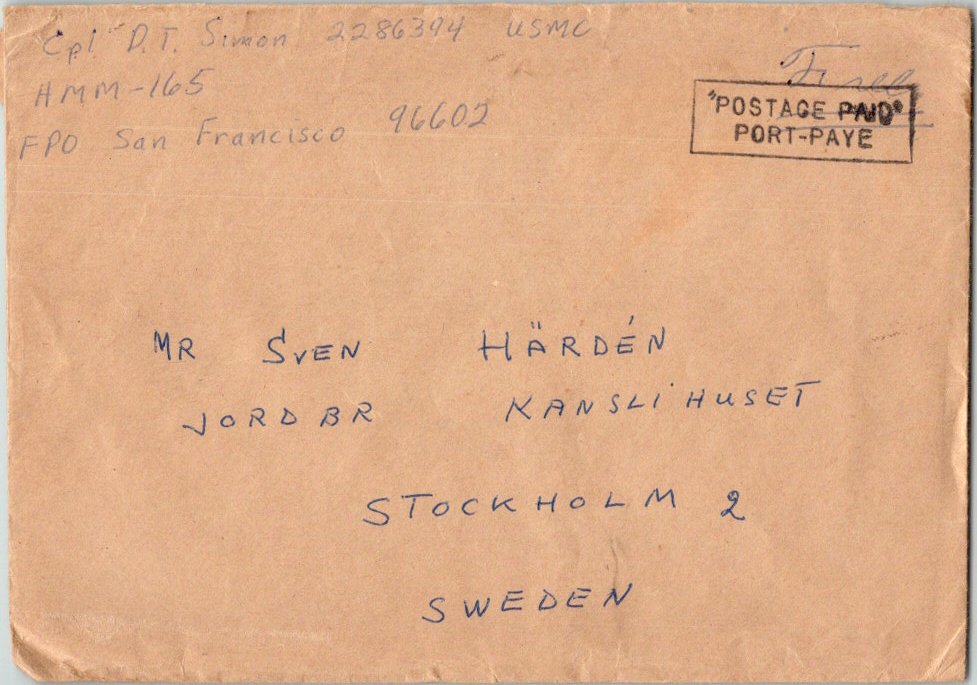 Cpl D.T. Simon 2286394 USMC
HMM-165
FPO San Francisco 96602
Free
"POSTAGE PAID"
PORT-PAYE
MR SVEN HÄRDÉN
JORDBR KANSLIHUSET
STOCKHOLM 2
SWEDEN